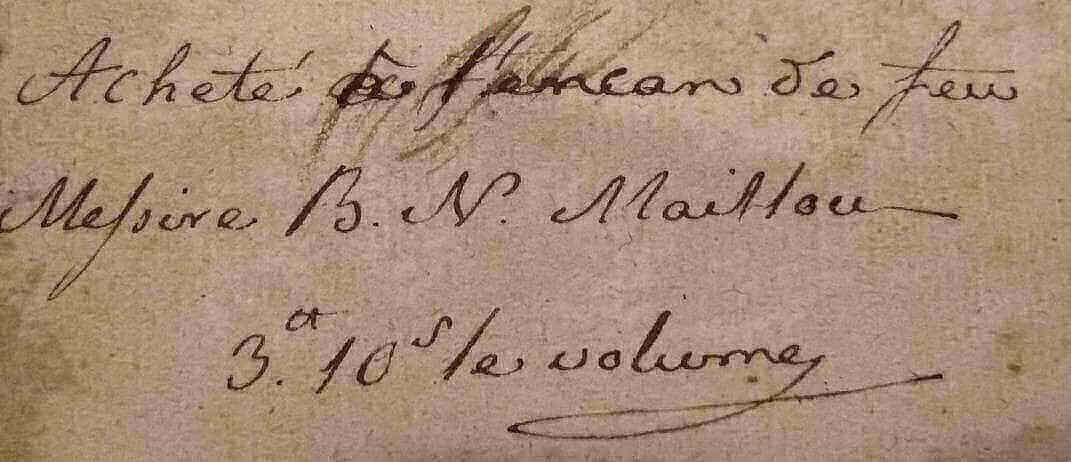 Acheté à l'encan de feu
Messire B. N. Maillou
3.^tt 10^s le volume